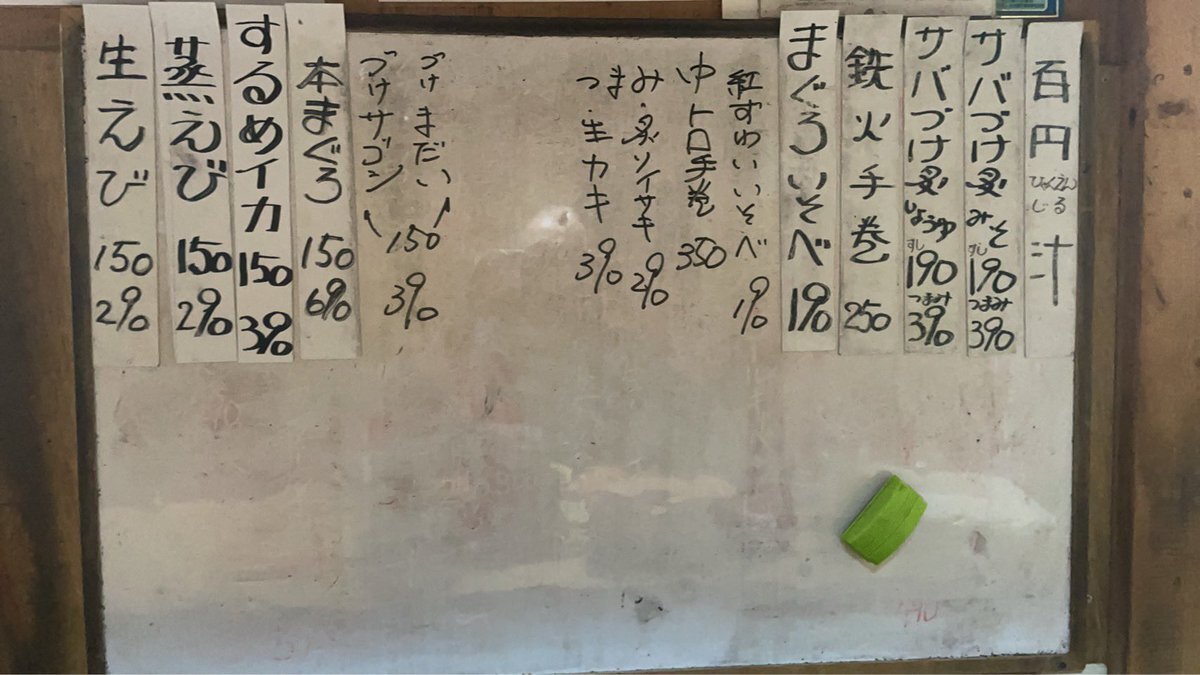 百円汁
ひゃくえん
じる
サバづけ炙みそ
すし
190
つまみ
390
サバづけ炙しょうゆ
すし
190
つまみ
390
鉄火手巻 250
まぐろいそべ 190
紅ずわいいそべ 190
ゆトロ手巻 350
つまみ
・炙ソイサキ 290
・生カキ 390
づけまだい
づけサゴシ
150
390
本まぐろ 150 690
するめイカ 150 390
蒸えび 150 290
生えび 150 290